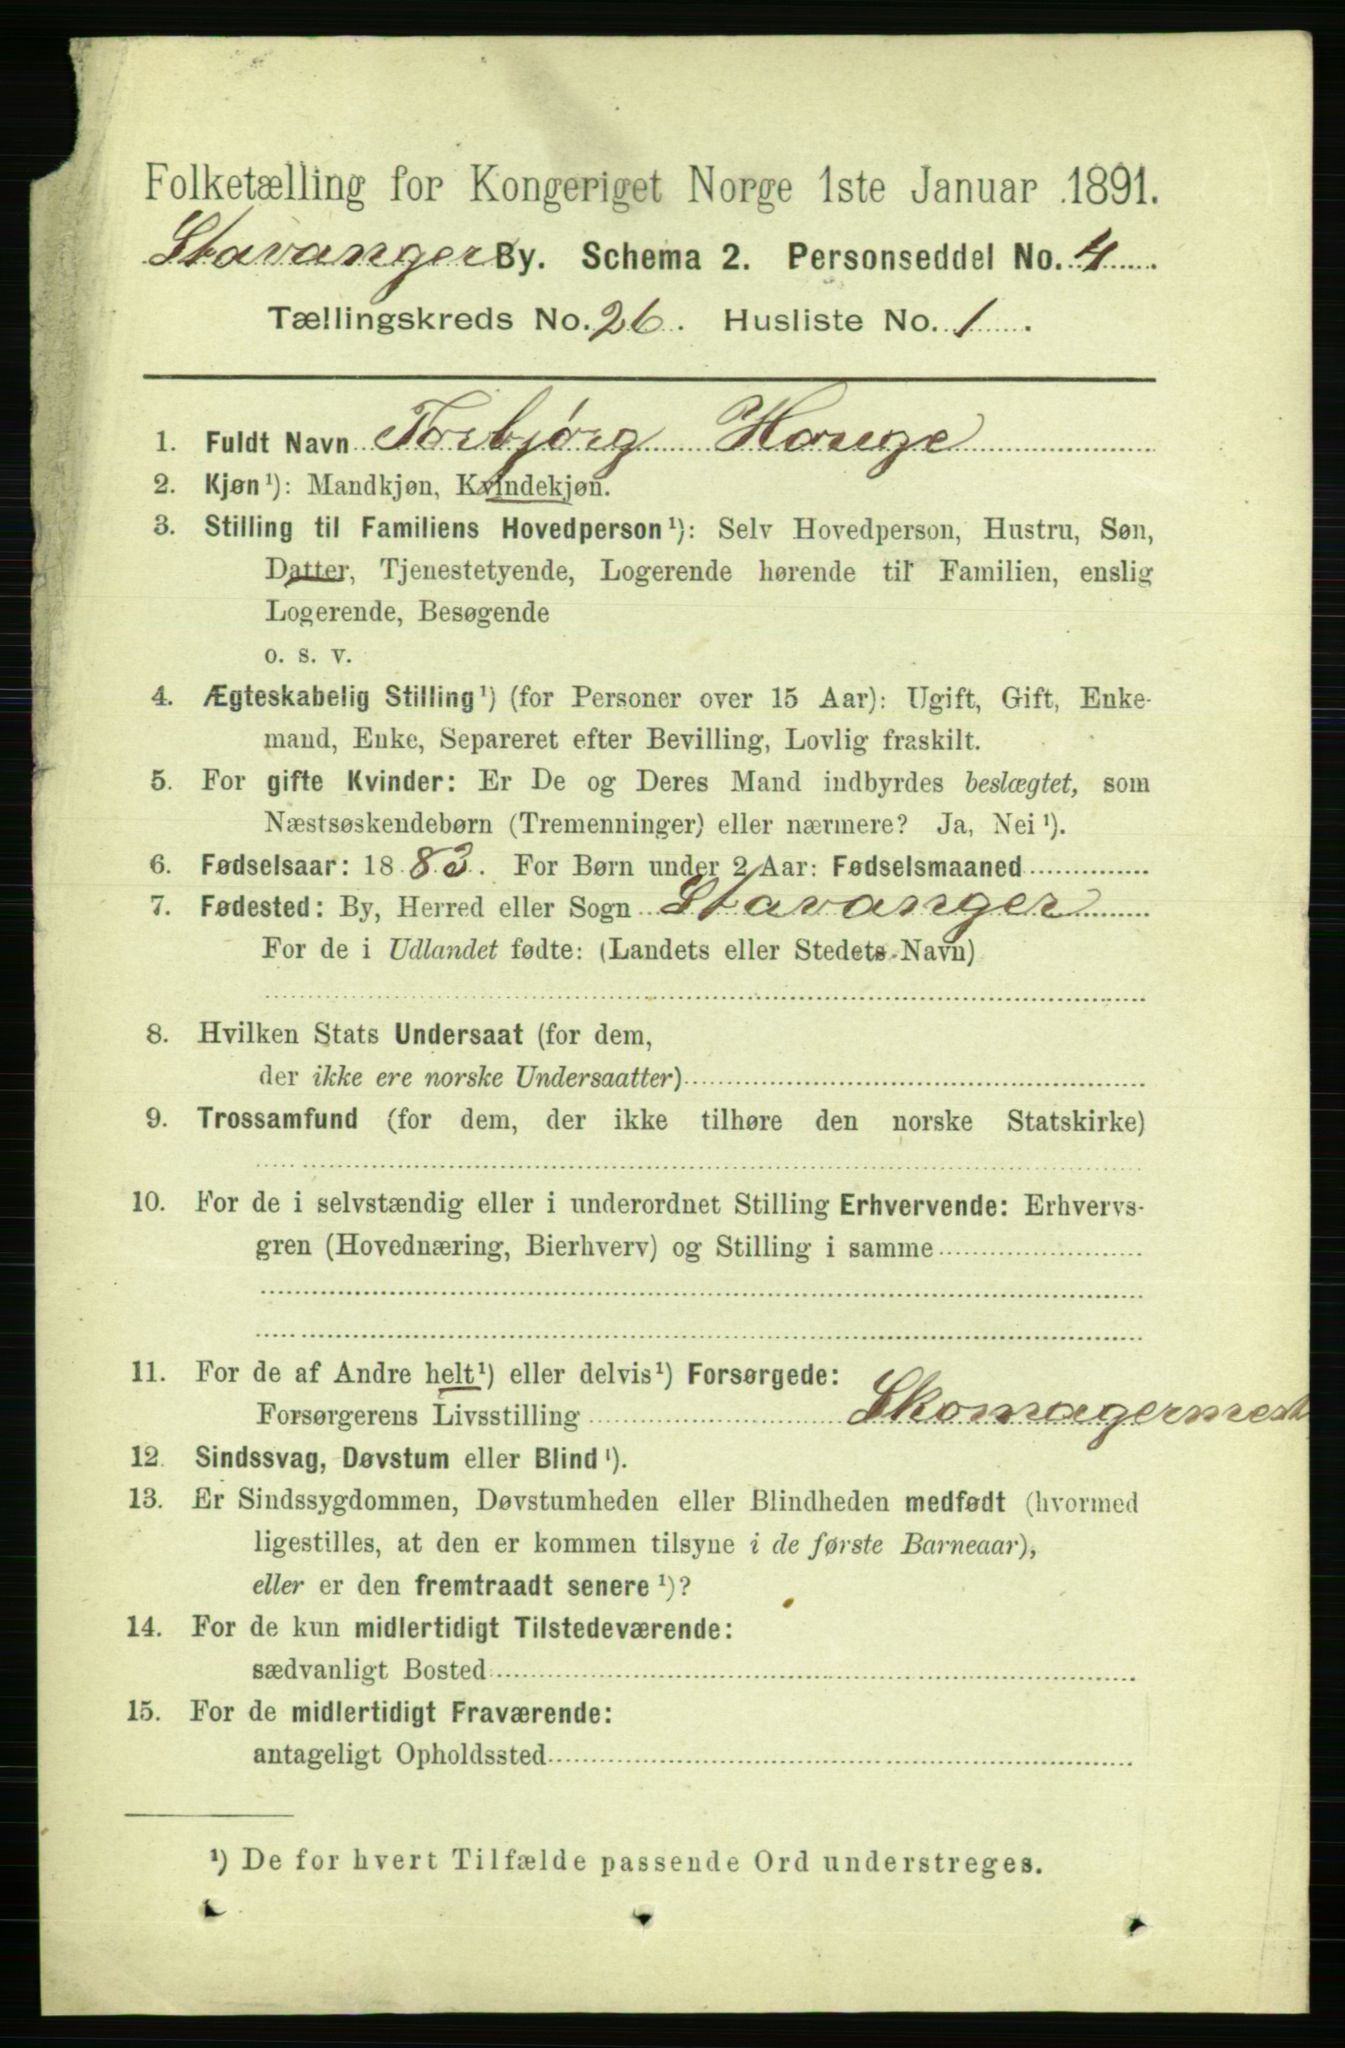 Folketælling for Kongeriget Norge 1ste Januar 1891.
Stavanger By. Schema 2. Personseddel No. 4
Tællingskreds No. 26. Husliste No. 1.
1. Fuldt Navn Torbjørg Hauge
2. Kjøn¹): Mandkjøn, Kvindekjøn.
3. Stilling til Familiens Hovedperson¹): Selv Hovedperson, Hustru, Søn,
Datter, Tjenestetyende, Logerende hørende til Familien, enslig
Logerende, Besøgende
o. s. v.
4. Ægteskabelig Stilling¹) (for Personer over 15 Aar): Ugift, Gift, Enke-
mand, Enke, Separeret efter Bevilling, Lovlig fraskilt.
5. For gifte Kvinder: Er De og Deres Mand indbyrdes beslægtet, som
Næstsøskendebørn (Tremenninger) eller nærmere? Ja, Nei¹).
6. Fødselsaar: 1883. For Børn under 2 Aar: Fødselsmaaned
7. Fødested: By, Herred eller Sogn Stavanger
For de i Udlandet fødte: (Landets eller Stedets Navn)
8. Hvilken Stats Undersaat (for dem,
der ikke ere norske Undersaatter)
9. Trossamfund (for dem, der ikke tilhøre den norske Statskirke)
10. For de i selvstændig eller i underordnet Stilling Erhvervende: Erhvervs-
gren (Hovednæring, Bierhverv) og Stilling i samme
11. For de af Andre helt¹) eller delvis¹) Forsørgede:
Forsørgerens Livsstilling Skomagermest
12. Sindssvag, Døvstum eller Blind¹).
13. Er Sindssygdommen, Døvstumheden eller Blindheden medfødt (hvormed
ligestilles, at den er kommen tilsyne i de første Barneaar),
eller er den fremtraadt senere¹)?
14. For de kun midlertidigt Tilstedeværende:
sædvanligt Bosted
15. For de midlertidigt Fraværende:
antageligt Opholdssted
¹) De for hvert Tilfælde passende Ord understreges.